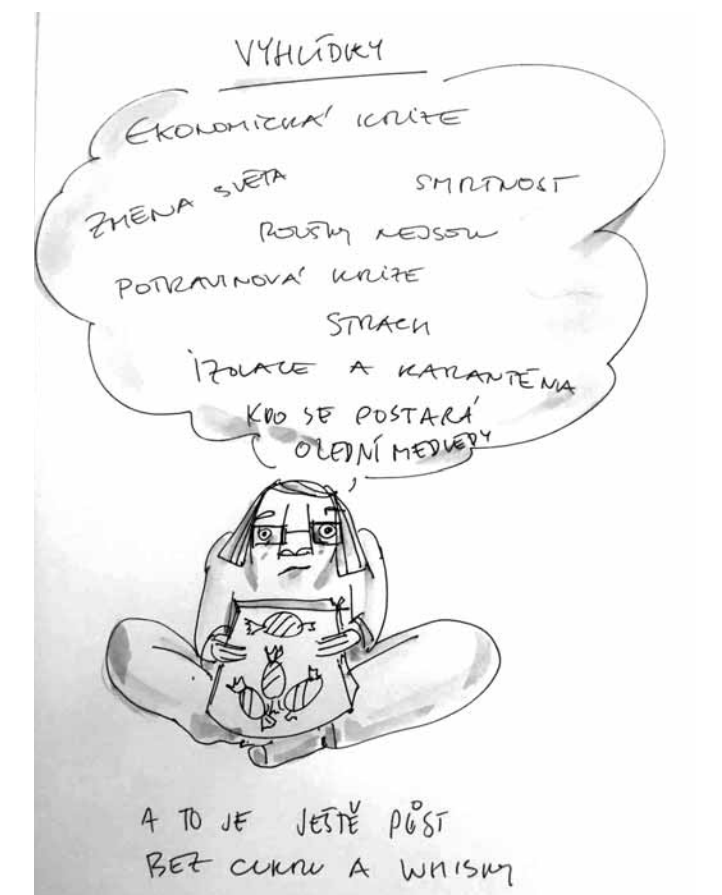 VYHLÍDKY
EKONOMICKÁ KRIZE
ZMĚNA SVĚTA SMRTNOST
ROUŠKY NEJSOU
POTRAVINOVÁ KRIZE
STRACH
IZOLACE A KARANTÉNA
KDO SE POSTARÁ
O LEDNÍ MEDVĚDY
A TO JE JEŠTĚ PŮST
BEZ CUKRU A WHISKY